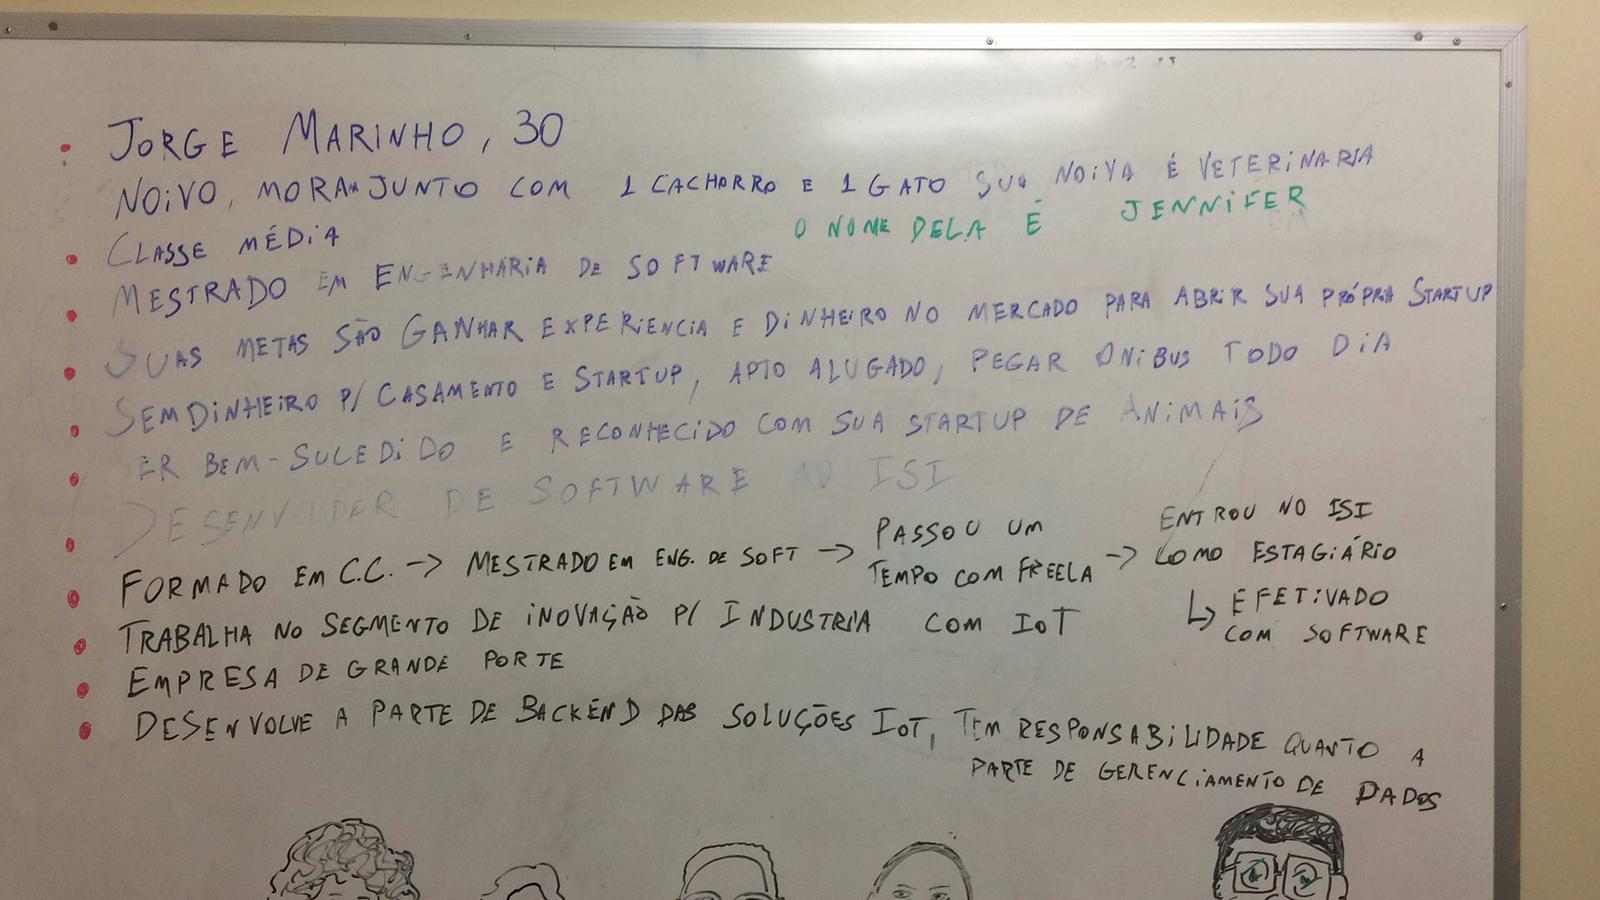 JORGE MARINHO, 30
NOIVO, MORAM JUNTO COM 1 CACHORRO E 1 GATO SUA NOIVA É VETERINARIA
O NOME DELA É JENNIFER
CLASSE MÉDIA
MESTRADO EM ENGENHARIA DE SOFTWARE
SUAS METAS SÃO GANHAR EXPERIENCIA E DINHEIRO NO MERCADO PARA ABRIR SUA PRÓPRIA STARTUP
SEM DINHEIRO P/ CASAMENTO E STARTUP, APTO ALUGADO, PEGAR ONIBUS TODO DIA
SER BEM-SUCEDIDO E RECONHECIDO COM SUA STARTUP DE ANIMAIS
DE SOFTWARE NO ISI
FORMADO EM C.C. -> MESTRADO EM ENG. DE SOFT -> PASSOU UM TEMPO COM FREELA -> ENTROU NO ISI COMO ESTAGIÁRIO
↳ EFETIVADO COM SOFTWARE
TRABALHA NO SEGMENTO DE INOVAÇÃO P/ INDUSTRIA COM IoT
EMPRESA DE GRANDE PORTE
DESENVOLVE A PARTE DE BACKEND DAS SOLUÇÕES IoT, TEM RESPONSABILIDADE QUANTO A
PARTE DE GERENCIAMENTO DE DADOS